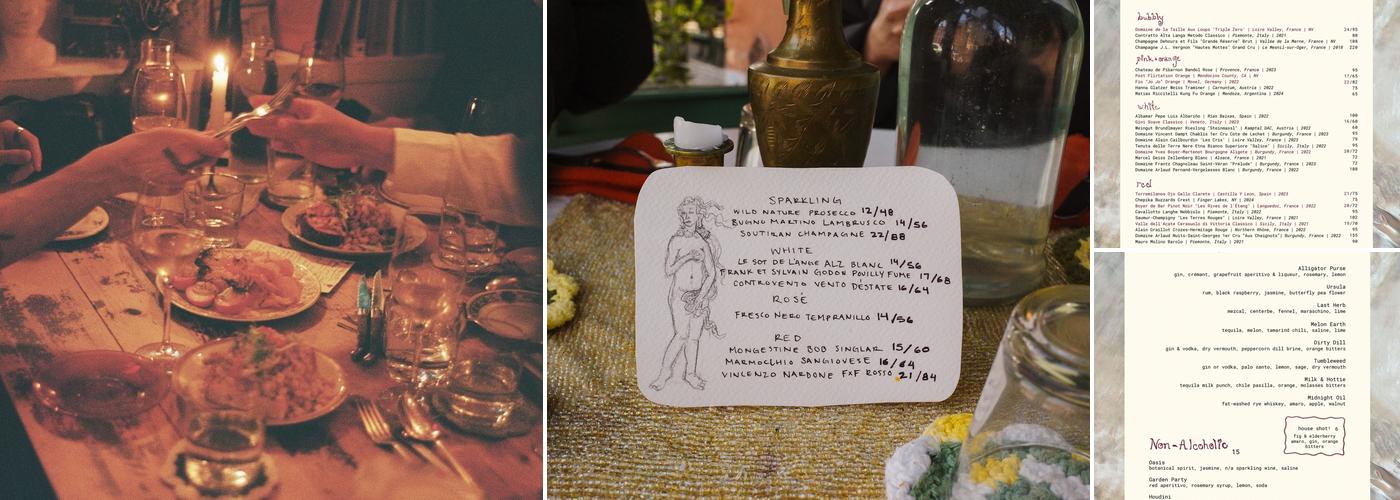 SPARKLING
WILD NATURE PROSECCO 12/48
BUGNO MARTINO LAMBRUSCO 14/56
SOUTIRAN CHAMPAGNE 22/88
WHITE
LE SOT DE L'ANGE ALZ BLANC 14/56
FRANK ET SYLVAIN GODON POUILLY FUME 17/68
CONTROVENTO VENTO DESTATE 16/64
ROSÉ
FRESCO NERO TEMPRANILLO 14/56
RED
MONGESTINE BOB SINGLAR 15/60
MARMOCCHIO SANGIOVESE 16/64
VINCENZO NARDONE FXF ROSSO 21/84
bubbly
Domaine de la Taille Aux Loups 'Triple Zero' | Loire Valley, France | NV 24/95
Contratto Alta Langa Metodo Classico | Piemonte, Italy | 2021 80
Champagne Dehours et Fils "Grande Réserve" Brut | Vallée de la Marne, France | NV 100
Champagne J.L. Vergnon "Hautes Mottes" Grand Cru | Le Mesnil-sur-Oger, France | 2010 220
pink+orange
Chateau de Pibarnon Bandol Rose | Provence, France | 2023 95
Post Flirtation Orange | Mendocino County, CA | NV 17/65
Fio "Jo Jo" Orange | Mosel, Germany | 2022 22/82
Hanna Glatzer Weiss Traminer | Carnuntum, Austria | 2022 75
Matias Riccitelli Kung Fu Orange | Mendoza, Argentina | 2024 65
white
Albamar Pepe Luis Albariño | Rias Baixas, Spain | 2022 100
Gini Soave Classico | Veneto, Italy | 2023 16/60
Weingut Brundlmayer Riesling "Steinmassl" | Kamptal DAC, Austria | 2022 60
Domaine Vincent Dampt Chablis 1er Cru Côte de Lechet | Burgundy, France | 2023 95
Domaine Alain Cailbourdin 'Les Cris' | Loire Valley, France | 2023 79
Tenuta delle Terre Nere Etna Bianco Superiore "Salice" | Sicily, Italy | 2022 95
Domaine Yves Boyer-Martenot Bourgogne Aligote | Burgundy, France | 2022 20/72
Marcel Deiss Zellenberg Blanc | Alsace, France | 2021 72
Domaine Frantz Chagnoleau Saint-Véran "Prélude" | Burgundy, France | 2023 72
Domaine Arlaud Pernand-Vergelesses Blanc | Burgundy, France | 2022 100
red
Torremilanos Ojo Gallo Clarete | Castilla Y Leon, Spain | 2023 21/75
Chepika Buzzards Crest | Finger Lakes, NY | 2024 75
Boyer de Bar Pinot Noir "Les Rives de l'Étang" | Languedoc, France | 2022 20/72
Cavallotto Langhe Nebbiolo | Piemonte, Italy | 2022 95
Saumur-Champigny "Les Terres Rouges" | Loire Valley, France | 2021 102
Valle dell'Acate Cerasuolo di Vittoria Classico | Sicily, Italy | 2021 19/70
Alain Graillot Crozes-Hermitage Rouge | Northern Rhône, France | 2022 95
Domaine Arlaud Nuits-Saint-Georges 1er Cru "Aux Chaignots" | Burgundy, France | 2022 155
Mauro Molino Barolo | Piemonte, Italy | 2021 90
Alligator Purse
gin, cremant, grapefruit aperitivo & liqueur, rosemary, lemon
Ursula
rum, black raspberry, jasmine, butterfly pea flower
Last Herb
mezcal, centerbe, fennel, maraschino, lime
Melon Earth
tequila, melon, tamarind chili, saline, lime
Dirty Dill
gin & vodka, dry vermouth, peppercorn dill brine, orange bitters
Tumbleweed
gin or vodka, palo santo, lemon, sage, dry vermouth
Milk & Hottie
tequila milk punch, chile pasilla, orange, molasses bitters
Midnight Oil
fat-washed rye whiskey, amaro, apple, walnut
house shot! 6
fig & elderberry
amaro, gin, orange
bitters
Non-Alcoholic 15
Oasis
botanical spirit, jasmine, n/a sparkling wine, saline
Garden Party
red aperitivo, rosemary syrup, lemon, soda
Houdini